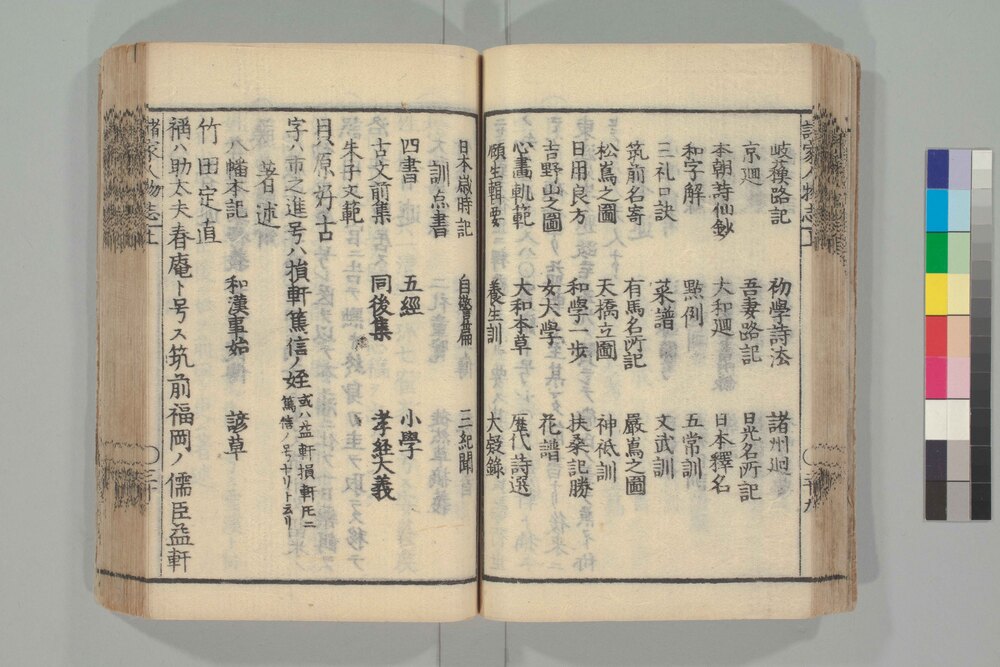 岐蘓路記 初學詩法 諸州廻
京廻 吾妻路記 日光名所記
本朝詩仙鈔 大和廻 日本釋名
和字解 點例 五常訓
三礼口訣 菜譜 文武訓
筑前名寄 有馬名所記 嚴嶌之圖
松嶌之圖 天橋立圖 神祇訓
日用良方 和學一歩 扶桑記勝
吉野山之圖 女大學 花譜
心畫軌範 大和本草 歴代詩選
頤生輯要 養生訓 大疑錄
日本歳時記 自警篇 三紀聞
訓点書
四書 五經 小學
古文前集 同後集 孝経大義
朱子文範
貝原好古
字ハ市之進号ハ損軒篤信ノ姪 或ハ益軒損軒氏ニ
篤信ノ号ナリト云リ
著述
八幡本記 和漢事始 諺草
竹田定直
稱ハ助太夫春庵ト号ス筑前福岡ノ儒臣益軒
諸家人物志上